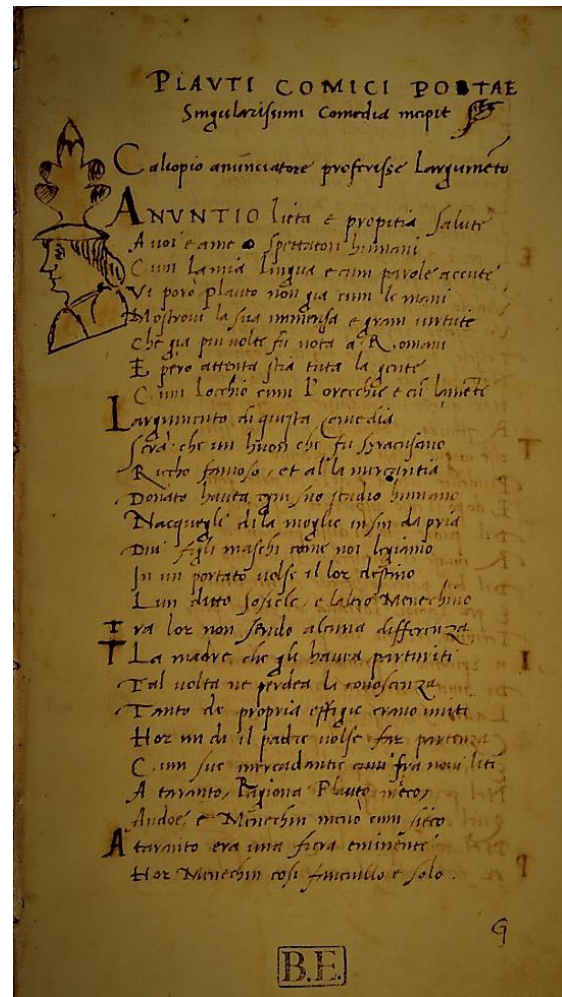 PLAVTI COMICI POETAE
Singularissimi Comedia incipit
Caliopio anunciatore proferisse Largumēto
ANVNTIO lieta e propitia salute
A voi e ame o spettatori humani
Cum la mia lingua e cum parole accute
Vi porò plauto non gia cum le mani
Mostrovi la sua immensa e gram virtute
Che gia piu volte fu nota a Romani
E pero attenta stia tuta la gente
Cum locchio cum l'orecchie e cū lamēte
Largumento di questa comedia
Serà che un huom che fu syracusano
Riccho famoso, et al la mercantia
Donato havea ogni suo studio humano
Nacquegli di la moglie insin da pria
Dui figli maschi come noi legiamo
In un portato volse il lor destino
Lun ditto Sosicle, e laltro Menechino
Tra lor non sendo alcuna differenza
La madre che gli havea parturiti
Tal volta ne perdea la conoscenza
Tanto de propria effigie erano uniti
Hor un di il padre volse far partenza
Cum sue mercadantie fra novi liti
A taranto, Ragiona Plauto meco,
Andoe, e Menechin menò cum seco
A taranto era una fiera eminente
Hor Menechin cosi fanciullo e solo.
G
B.E.